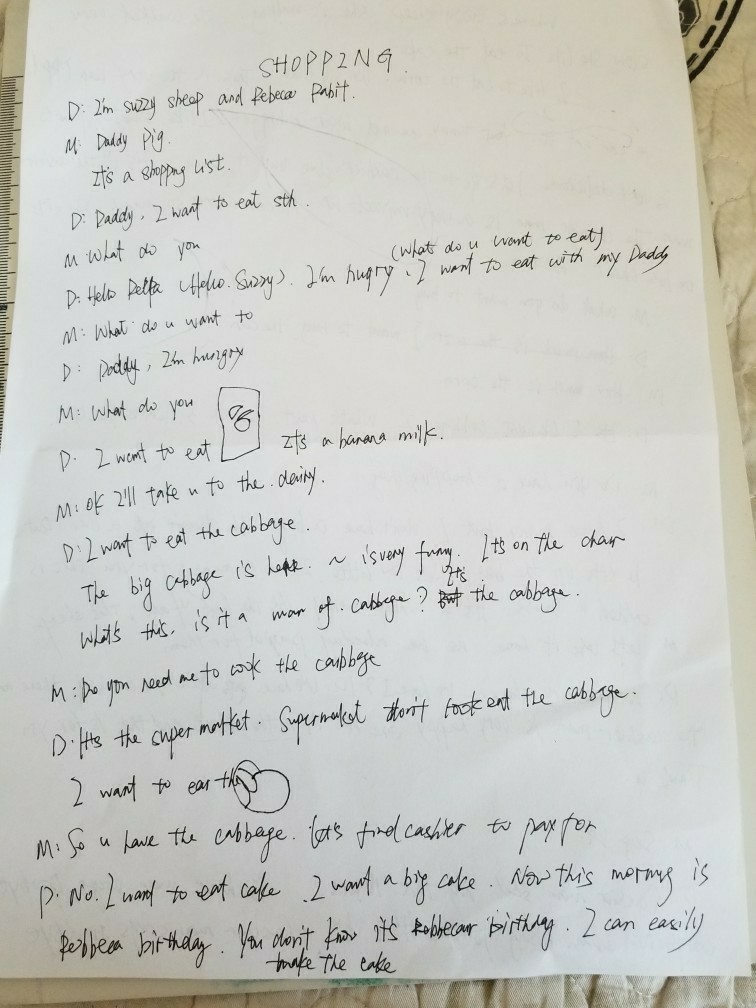 SHOPPING.
D: I'm suzzy sheep and Rebeca Rabit.
M: Daddy Pig.
It's a shoppng list.
D: Daddy, I want to eat sth.
M What do you
(What do u want to eat)
D: Hello (Hello. Suzzy). I'm hugry. I want to eat with my Daddy
M: What do u want to
D: Daddy, I'm hungry
M: What do you
D. I want to eat It's a banana milk.
M: OK I'll take u to the dairy.
D: I want to eat the cabbage.
The big cabbage is here. ~ is very funny. It's on the chair
What's this, is it a man of cabbage? It's the cabbage.
M: Do you need me to cook the cabbage
D. It's the super market. Supermarket don't eat the cabbage.
I want to eat the
M: So u have the cabbage. Let's find cashier to pay for
D. No. I want to eat cake. I want a big cake. Now this morning is
Rebbeca birthday. You don't know it's Robbecar birthday. I can easily
make the cake